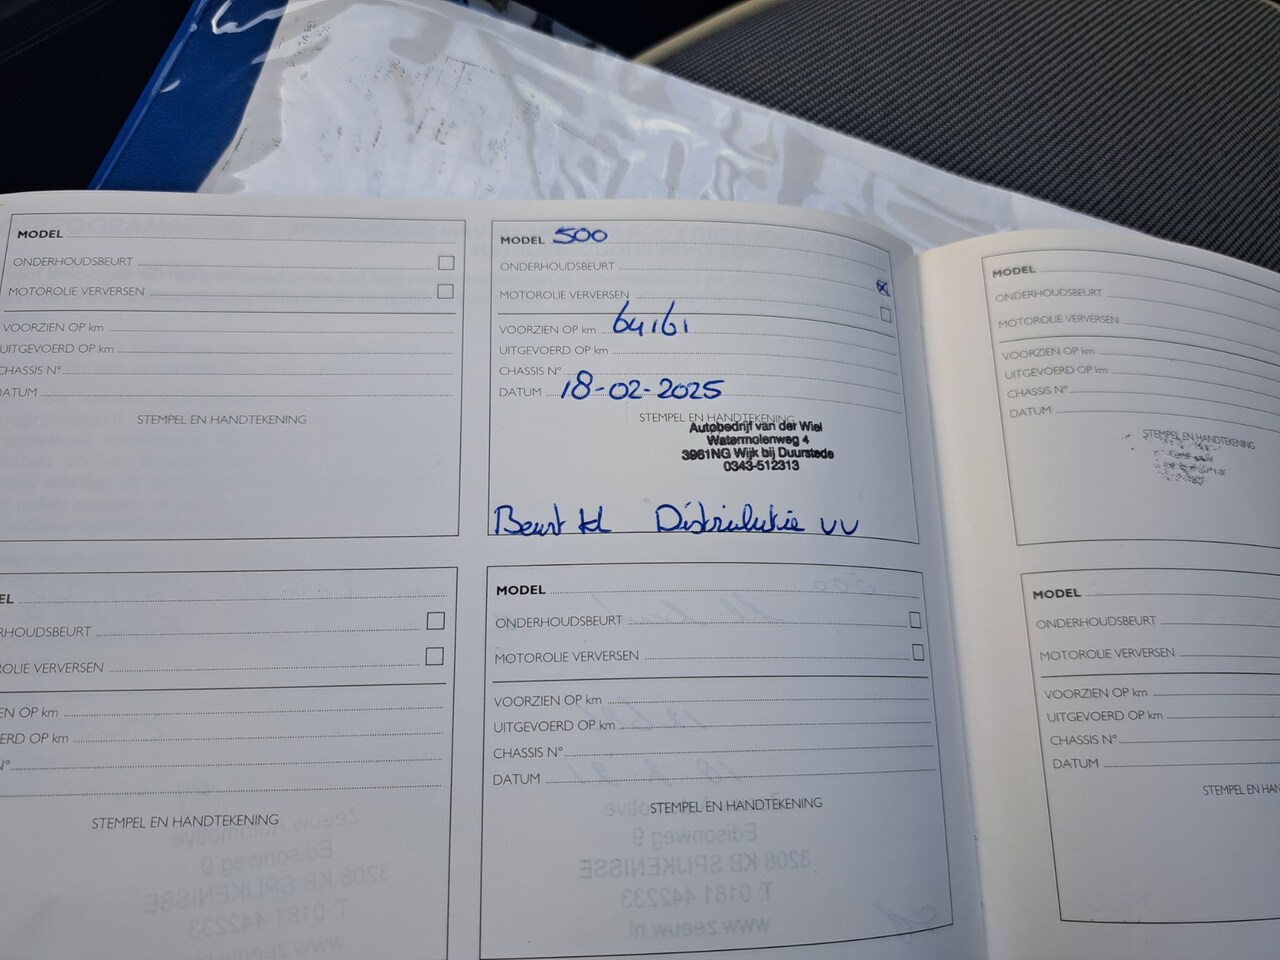 MODEL
ONDERHOUDSBEURT
MOTOROLIE VERVERSEN
VOORZIEN OP km
UITGEVOERD OP km
CHASSIS N°
DATUM
STEMPEL EN HANDTEKENING
MODEL 500
ONDERHOUDSBEURT
MOTOROLIE VERVERSEN
VOORZIEN OP km 64161
UITGEVOERD OP km
CHASSIS N°
DATUM 18-02-2025
STEMPEL EN HANDTEKENING
Autobedrijf van der Wiel
Watermolenweg 4
3961NG Wijk bij Duurstede
0343-512313
Beurt kl Distributie vv
MODEL
ONDERHOUDSBEURT
MOTOROLIE VERVERSEN
VOORZIEN OP km
UITGEVOERD OP km
CHASSIS N°
DATUM
STEMPEL EN HANDTEKENING
EL
RHOUDSBEURT
ROLIE VERVERSEN
EN OP km
ERD OP km
N°
STEMPEL EN HANDTEKENING
MODEL
ONDERHOUDSBEURT
MOTOROLIE VERVERSEN
VOORZIEN OP km
UITGEVOERD OP km
CHASSIS N°
DATUM
STEMPEL EN HANDTEKENING
MODEL
ONDERHOUDSBEURT
MOTOROLIE VERVERSEN
VOORZIEN OP km
UITGEVOERD OP km
CHASSIS N°
DATUM
STEMPEL EN HAN